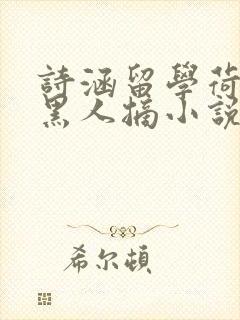 詩涵留學荷
黑人摘小說
希尔頓